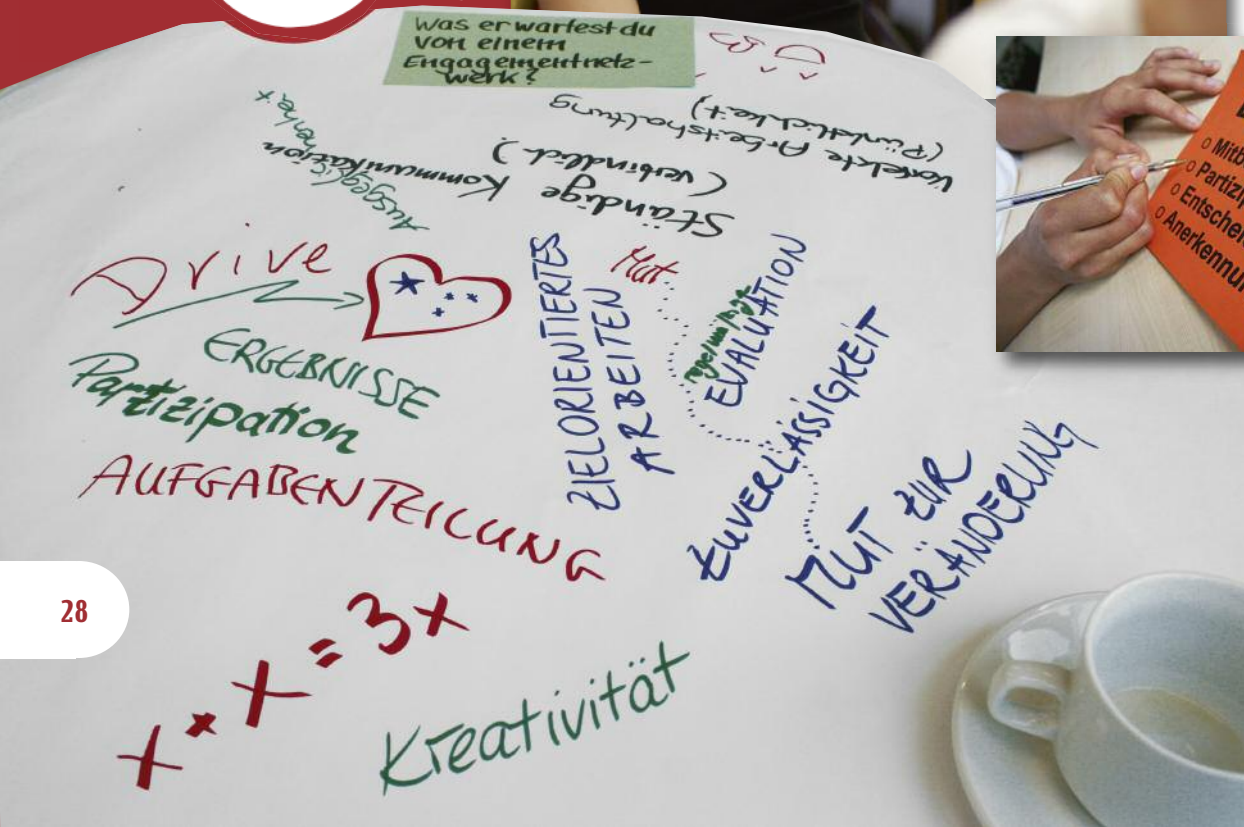 Was erwartest du
von einem
Engagementnetz-
werk?
korrekte Arbeitshaltung
(Pünktlichkeit)
Ständige Kommunikation
(verbindlich!)
Drive
ERGEBNISSE
Partizipation
AUFGABENTEILUNG
ZIELORIENTIERTES
ARBEITEN
Mut
regelmäßige
EVALUATION
ZUVERLÄSSIGKEIT
MUT ZUR
VERÄNDERUNG
x + x = 3x
Kreativität
28
o Mitb
o Partizip
o Entschei
o Anerkennun